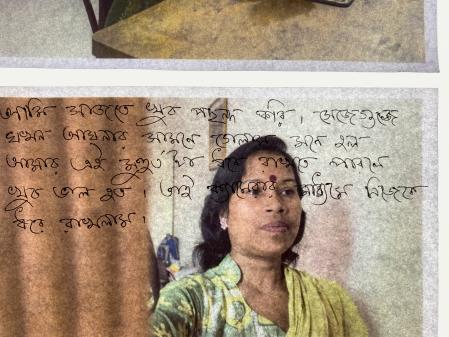 আমি সাজতে খুব পছন্দ করি। সেজেগুজে
যখন আয়নার সামনে গেলাম মনে হল
আমার এই মুহূর্ত ধরে রাখতে পারলে
খুব ভাল হত। তাই ক্যামেরার মাধ্যমে নিজেকে
ধরে রাখলাম।